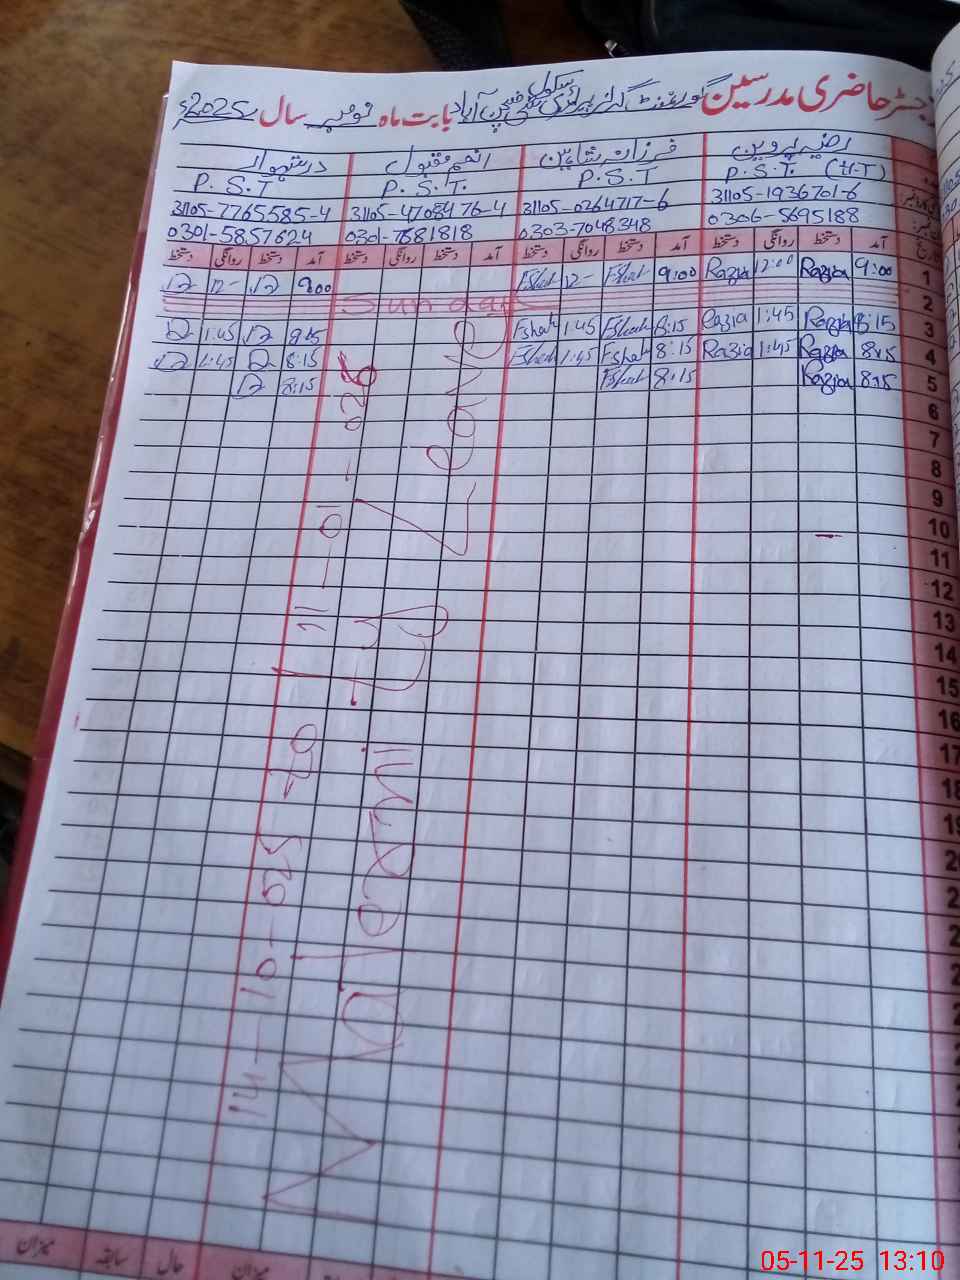 رجسٹر حاضری مدرسین گورنمنٹ گرلز پرائمری سکول بابت ماہ نومبر سال 2025ء
رضیہ پروین فرزانہ شاہین انعم مقبول درشہوار
P.S.T. (H-T) P.S.T P.S.T. P.S.T
31105-1936701-6 31105-0264717-6 31105-4708476-4 31105-7765585-4
0306-5695188 0303-7048348 0301-7681818 0301-5857624
آمد دستخط روانگی دستخط آمد دستخط روانگی دستخط آمد دستخط روانگی دستخط آمد دستخط روانگی دستخط
1 9:00 Razia 12:00 Razia 9:00 12- 900 12-
2 Sunday
3 8:15 Razia 1:45 Razia 8:15 1:45 1:45
4 8:15 Razia 1:45 Razia 8:15 1:45 8:15 1:45
5 8:15 Razia 8:15 8:15
6
7
8
9
10
11
12
13
14
15
16
17
Maternity Leave
14-10-025 to 11-01-026
میزان سابقہ حال میزان
05-11-25 13:10